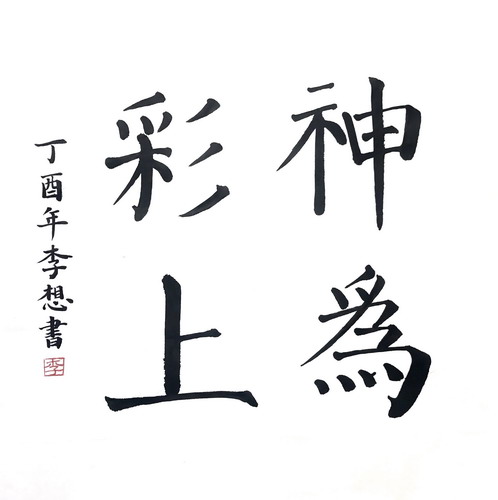 神為
彩上
丁酉年李想書
李